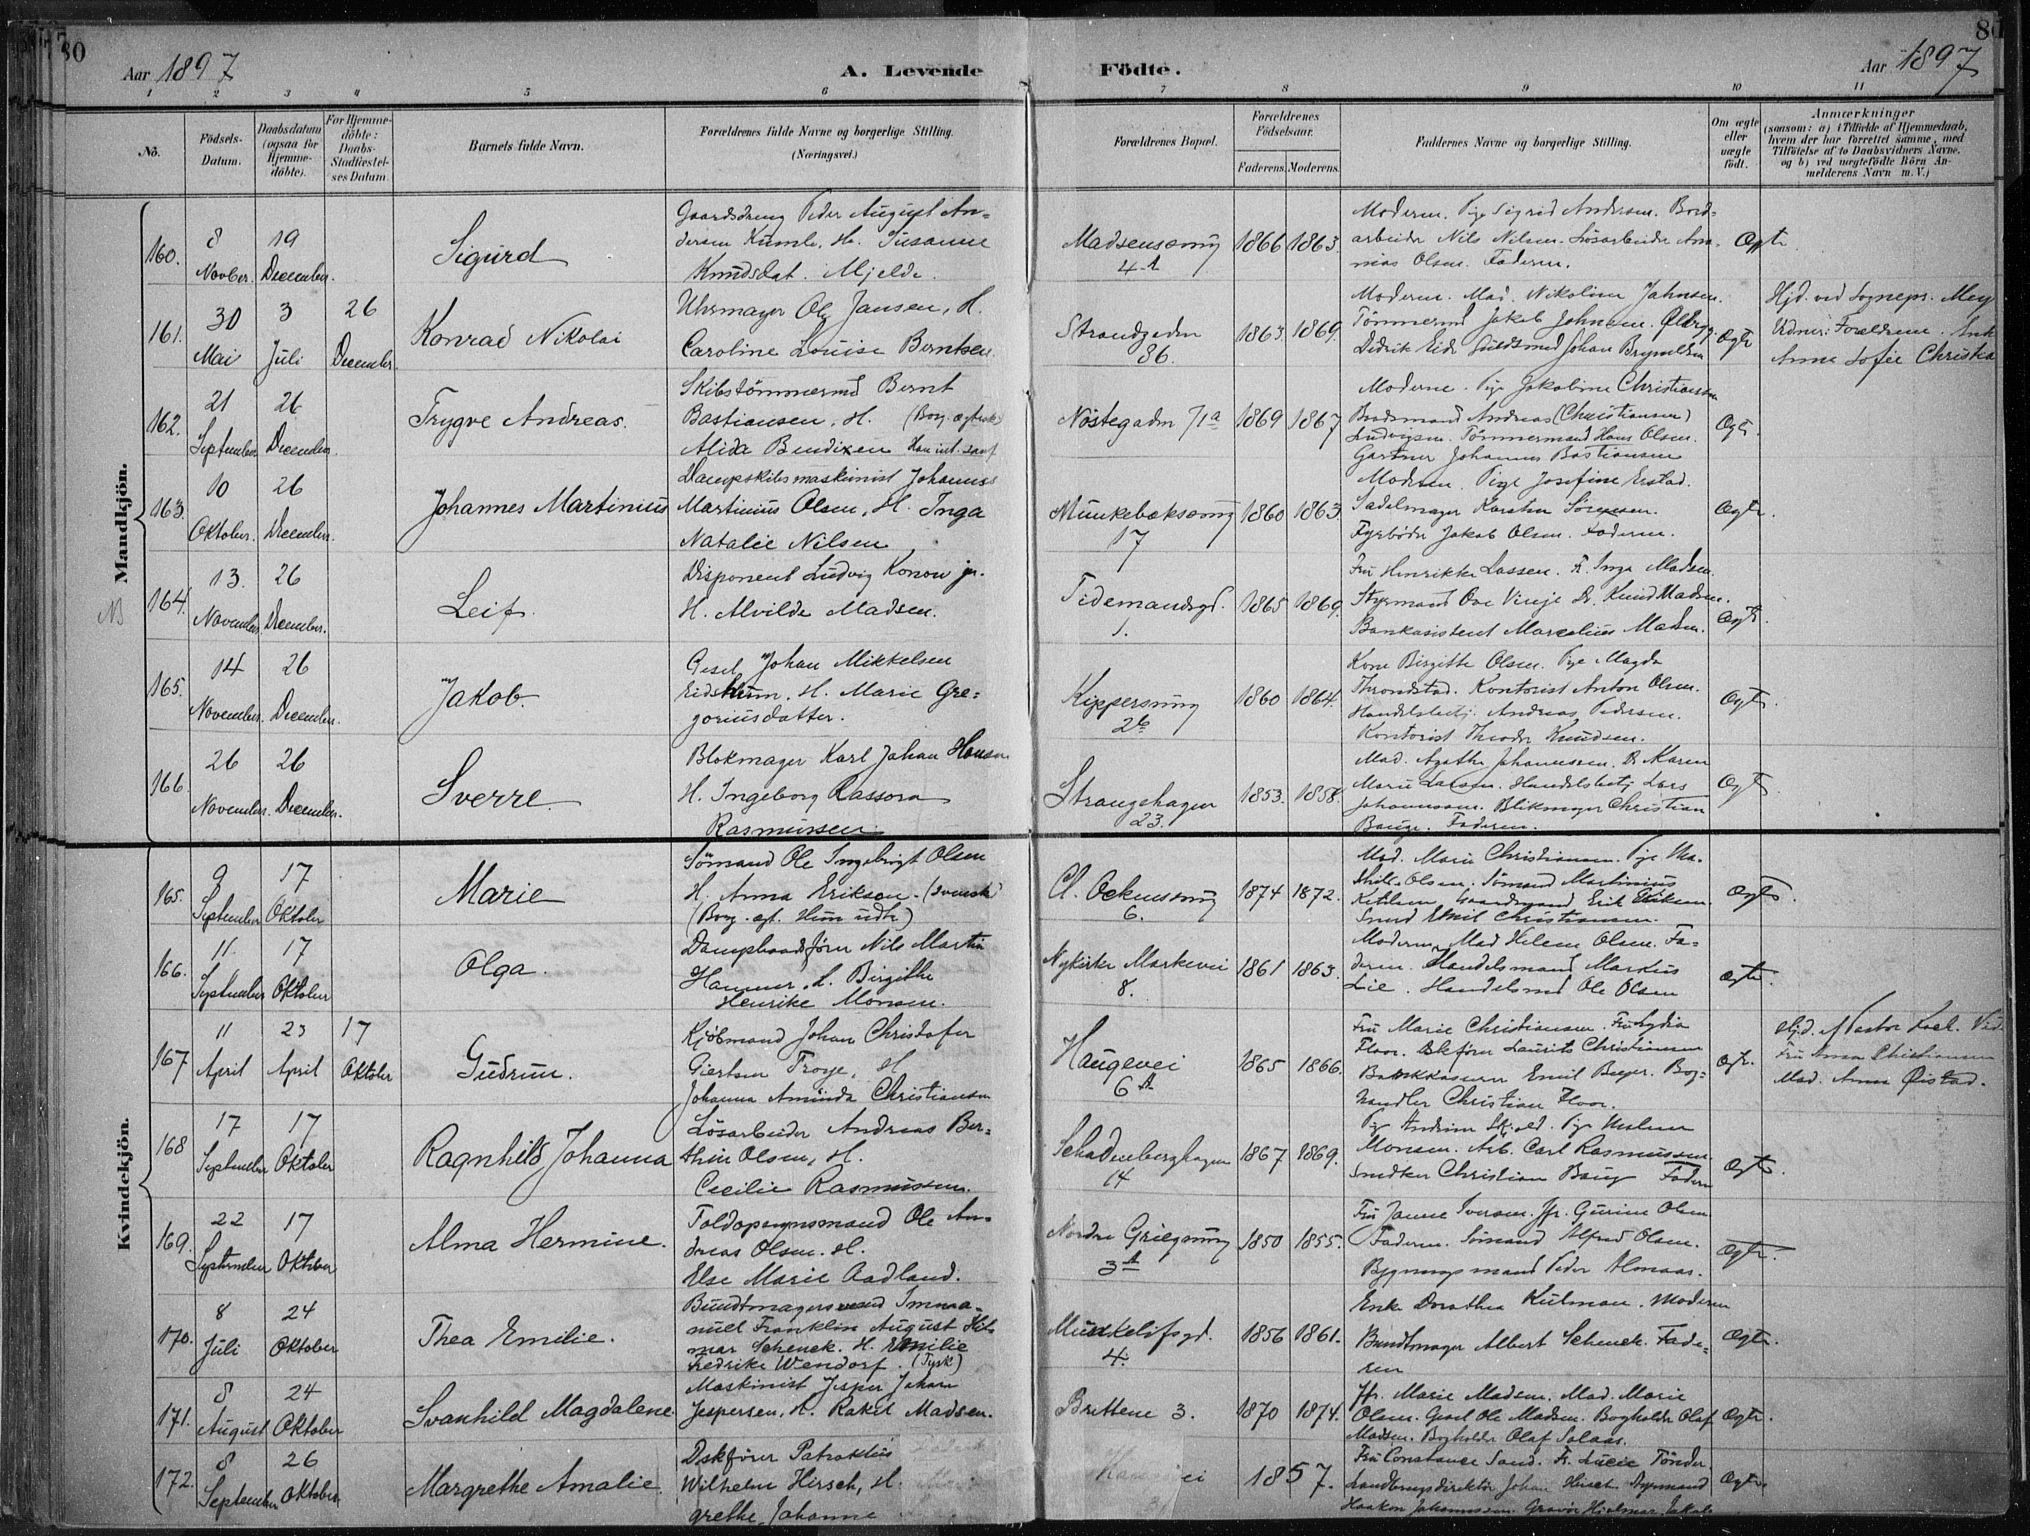 80
Aar 1897
A. Levende Födte.
Aar 1897
1 2 3 4 5 6 7 8 9 10 11
No.
Födsels-Datum.
Daabsdatum (ogsaa for Hjemme-döbte).
For Hjemme-döbte: Daabs-Stadfæstel-ses Datum.
Barnets fulde Navn.
Forældrenes fulde Navne og borgerlige Stilling.
(Næringsvei.)
Forældrenes Bopæl.
Forældrenes Födselsaar.
Faderens. Moderens.
Faddernes Navne og borgerlige Stilling.
Om ægte eller uægte födt.
Anmærkninger
(saasom: a) i Tilfælde af Hjemmedaab,
hvem der har forrettet samme, med
Tilföielse af to Daabsvidners Navne,
og b) ved uægtefödte Börn An-
melderens Navn m. V.)
Mandkjön.
160. 8 Novber. 19 December.
Sigurd
Gaardsdreng Peder August An-
dersen Kumle, H. Susanne
Knudsdat. Mjelde.
Madsensmug 4-A
1866 1863.
Moderen. Pige Sigrid Andersen. Bord-
arbeider Nils Nilsen. Løsarbeider Ana-
nias Olsen. Faderen.
Ægte
161. 30 Mai 3 Juli 26 December.
Konrad Nikolai
Uhrmager Ole Jansen, H.
Caroline Louise Berntsen
Strandgaden 86.
1863. 1869.
Moderen. Mad. Nikoline Jahnsen.
Tømmermd Jakob Johnsen.
Didrik Eide Guldsmed Johan Brynildsen
Ægte
Hjd. ved Sognepr. Mey
Vidner: Forældrene.
Anna Sofie Christia
162. 21 September 26 December.
Trygve Andreas.
Skibstömmermd Bernt
Bastiansen, H. (Borg. ægtevi)
Alida Bendixen
Nöstegaden 71a
1869 1867
Moderne. Pige Jakobine Christiansen
Bradsmand Andreas (Christiansen)
Ludvigsen. Tömmermand Hans Olsen.
Gartner Johannes Bastiansen
Ægte.
163. 10 Oktober. 26 December.
Johannes Martinius
Dampskibsmaskinist Johannes
Martinius Olsen, H. Inga
Natalie Nilsen
Munkebæksmug 17
1860 1863.
Moderen. Pige Josefine Erstad.
Sadelmager Karsten Sörensen.
Fyrböder Jakob Olsen. Faderen.
Ægte.
NB
164. 13. November. 26 December.
Leif.
Disponent Ludvig Konow jr.
H. Alvilde Madsen.
Tidemandsgd. 1.
1865 1869.
Fru Henrikke Lassen. F. Inga Madsen.
Styrmand Ove Vinje Dr. Knud Madsen.
Bankassistent Marcelius Madsen.
Ægte.
165. 14 November. 26 December.
Jakob.
Gesel Johan Mikkelsen
Eidsheim, H. Marie Gre-
goriusdatter.
Kippersmug 2b
1860 1864.
Kone Birgitte Olsen. Pige Magda
Throndstad. Kontorist Anton Olsen.
Handelsbetj. Andreas Pedersen.
Kontorist Theodor Knudsen.
Ægte.
166. 26 November. 26 December.
Sverre.
Blokmager Karl Johan Hansen
H. Ingeborg Rassora
Rasmussen.
Strangehagen 23.
1853. 1858.
Mad. Agathe Johannesen. D. Karen
Marie Larsen. Handelsbetj Lars
Johannesen. Blikmager Christian
Bauge. Faderen.
Ægte.
Kvindekjön.
165. 9 September 17 Oktober
Marie
Sömand Ole Ingebrigt Olsen
H. Anna Erikson. (svensk)
(Borg. æt. Hun udtr)
Cl. Ockensmug 6.
1874 1872.
Mad. Marie Christiansen. Pige Ma-
thilde Olsen. Sömand Martinius
Ketilsen Gaardmand Erik Eriksen
Smed Emil Christiansen.
Ægte.
166. 11. September 17 Oktober
Olga.
Dampbaadsförer Nils Martin
Hammer, H. Birgitte
Henrike Monsen.
Nykirke Markevei 8.
1861 1863.
Moderen. Mad Helene Olsen. Fa-
deren. Handelsmand Markus
Lie. Handelsmd Ole Olsen
Ægte.
167 11 April 23 April 17 Oktober
Gudrun.
Kjöbmand Johan Christofer
Giertsen Troye, H.
Johanna Aminda Christiansen
Haugevei 6A
1865 1866.
Fru Marie Christiansen. Fru Lydia
Floor. Dskförer Laurits Christiansen
Bankkasserer Emil Beyer. Bog-
handler Christian Floor.
Ægte.
Hjd. af Pastor Lock. Vid.
Fru Anna Christiansen
Mad. Anna Öistad.
168 17 September 17 Oktober
Ragnhild Johanna
Lösarbeider Andreas Ber-
thin Olsen, H.
Cecilie Rasmussen.
Schadenberghagen 14
1867 1869.
Pige Andrine Skjold. Pige Malene
Monsen. Arb. Carl Rasmussen
Snedker Christian Baug Faderen
Ægte.
169. 22 September 17 Oktober
Alma Hermine.
Toldopsynsmand Ole An-
dreas Olsen. H.
Else Marie Aadland.
Nordre Griegsmug 3A
1850 1855.
Fru Janne Iversen. Jfr. Gurine Olsen
Faderen. Sömand Alfred Olsen.
Bygningsmand Peder Almaas.
Ægte.
170. 8 Juli 24 Oktober
Thea Emilie.
Bundtmagersvend Imma-
nuel Franklin August Hil-
mar Schenck. H. Emilie
Fredrike Wendorf. (Tysk)
Munkelifsgd. 4.
1856 1861.
Enke Dorothea Kulman. Moderen
Bundtmager Albert Schenck. Fade-
ren
Ægte.
171. 8 August 24 Oktober
Svanhild Magdalene.
Maskinist Jesper Johan
Jespersen, H. Rakel Madsen.
Brettene 3.
1870 1874.
Jfr. Marie Madsen. Mad. Marie
Olsen. Gesel Ole Madsen. Bogholder Olaf
Madsen. Bogholder Olaf Salaas.
Ægte.
172. 8 September 26 Oktober
Margrethe Amalie.
Dskförer Patroklus
Wilhelm Hirsch, H.
grethe Johanne
1857.
Fru Constance Sand. Fr. Lucie Tönder.
Landbrugsdirektör Johan Hirsch. Styrmand
Haakon Johannessen. Gravör Hjalmar Jakob
Ægte.